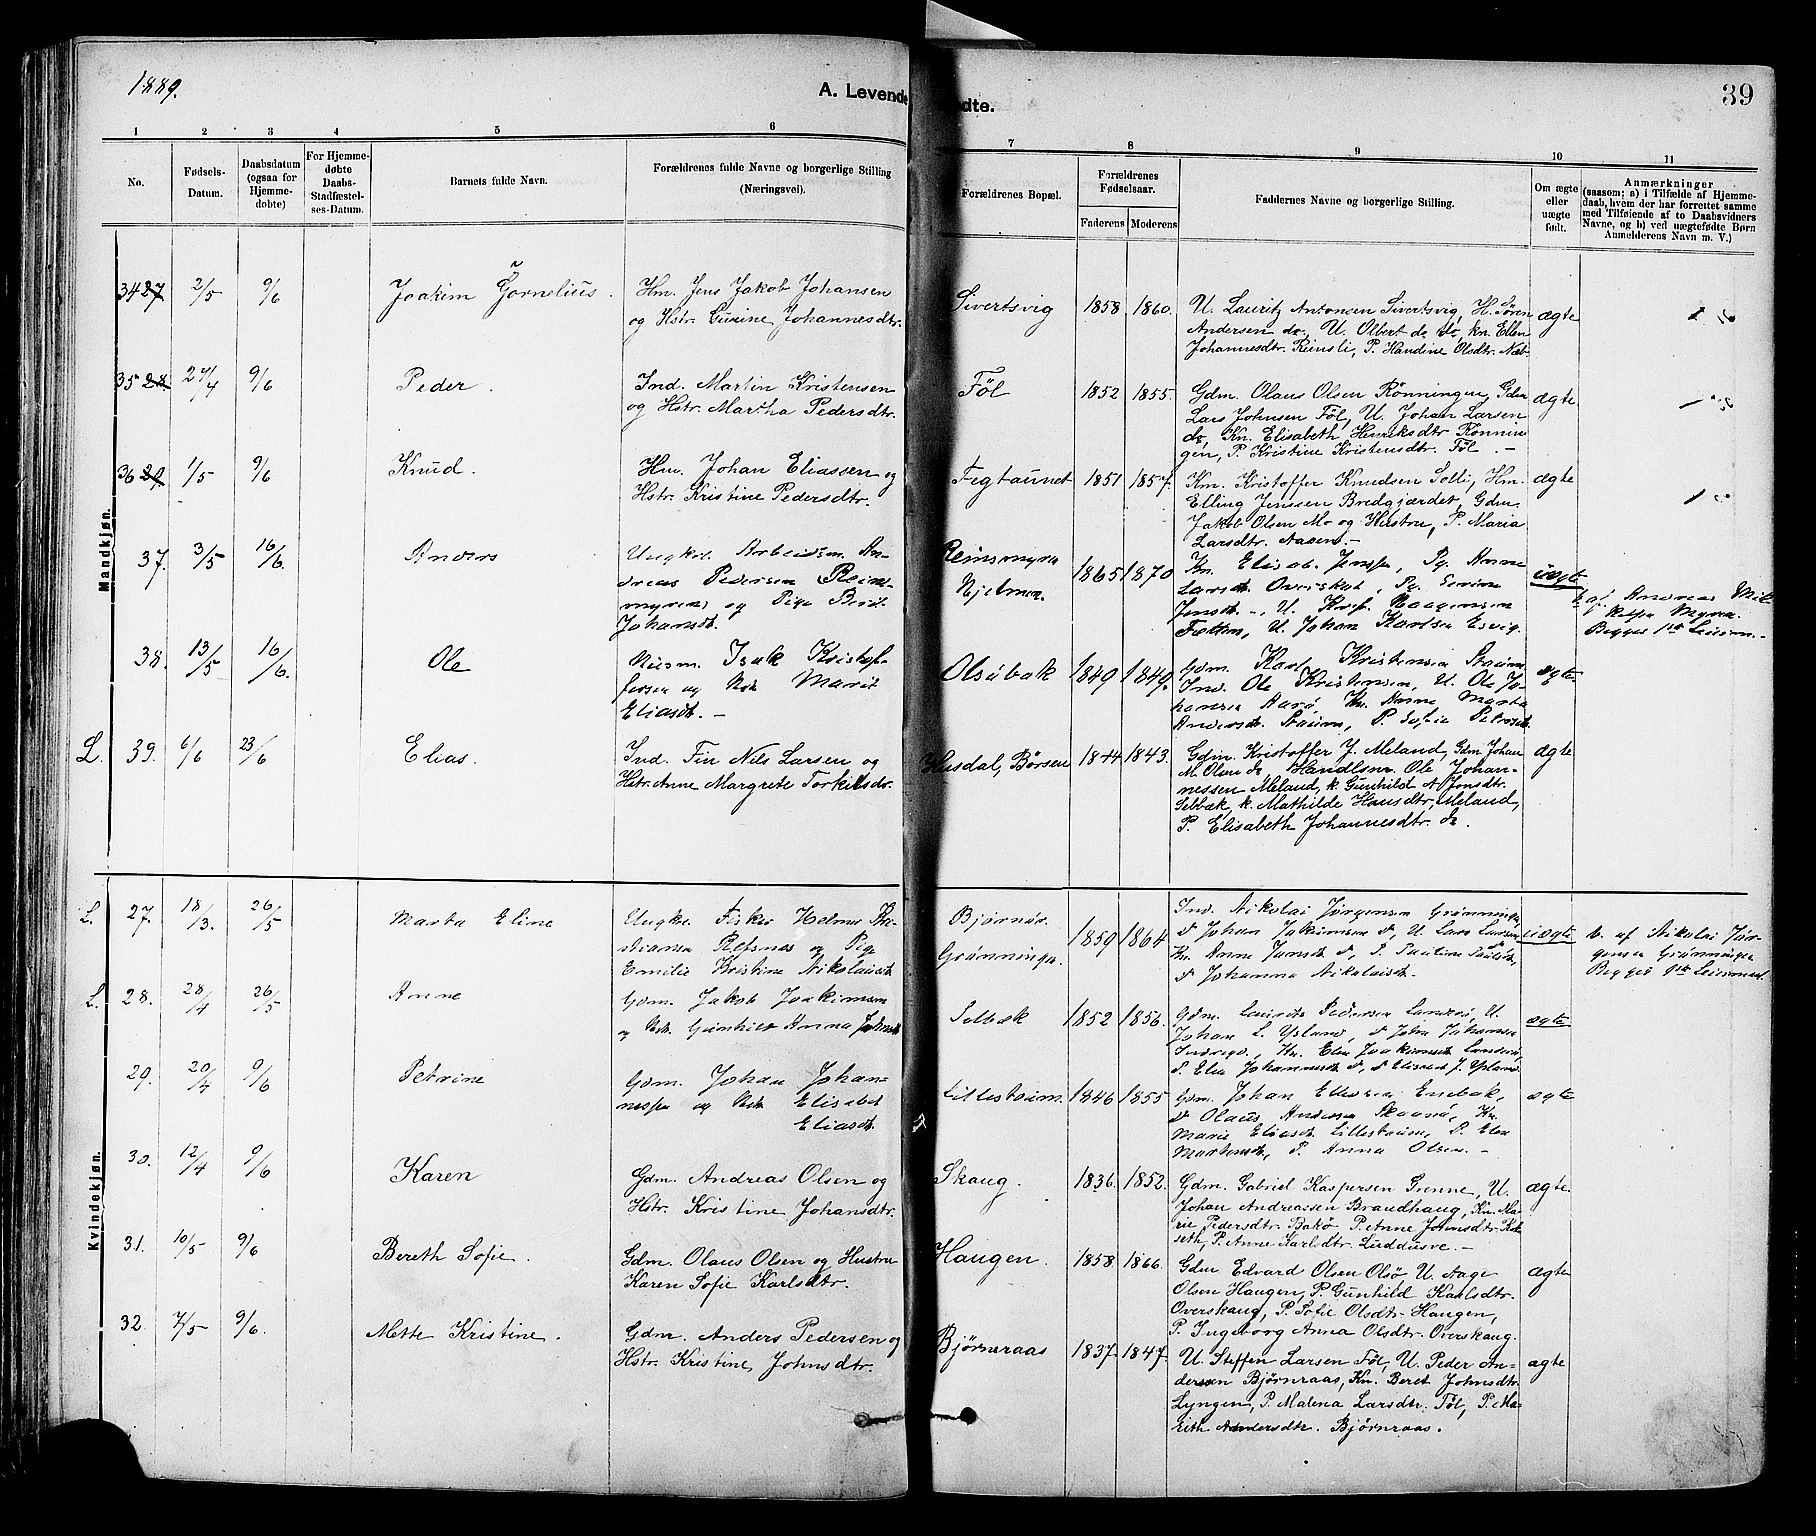 1889.
A. Levende
ødte.
39
1 2 3 4 5 6 7 8 9 10 11
No.
Fødsels-Datum.
Daabsdatum (ogsaa for Hjemme-døbte)
For Hjemme-døbte Daabs-Stadfæstel-ses-Datum.
Barnets fulde Navn.
Forældrenes fulde Navne og borgerlige Stilling
(Næringsvei).
Forældrenes Bopæl.
Forældrenes Fødselsaar.
Faderens Moderens
Faddernes Navne og borgerlige Stilling.
Om ægte eller uægte født.
Anmærkninger
(saasom; a) i Tilfælde af Hjemme-
daab, hvem der har forrettet samme
med Tilføiende af to Daabsvidners
Navne, og b) ved uægtefødte Børn
Anmelderens Navn m. V.)
Mandkjøn.
34 27 2/5 9/6 Joakim Gornelius. Hm. Jens Jakob Johansen
og Hstr. Gurine Johannesdtr.
Sivertsvig 1858 1860. U. Lauritz Antonsen Sivertsvig, H. Søren
Andersen do, U. Olbert do do, kn. Ellen
Johannesdtr. Reinsli, P. Handine Olsdtr. Næb-
ægte
35 28 24/4 9/6 Peder. Ind. Martin Kristensen
og Hstr. Martha Pedersdtr.
Føl 1852 1855. Gdm. Olaus Olsen Rønningen, Gdm
Lars Johnsen Føl, U. Johan Larsen
do, Kn. Elisabeth Henriksdtr Rønnin
gen, P. Kristine Kristensdtr. Føl. -
ægte.
36 29 1/5 9/6 Knud. Hm. Johan Eliassen og
Hstr. Kristine Pedersdtr.
Fegtaunet 1851 1857. Km. Kristoffer Knudsen Solli, Hm.
Elling Jenssen Bredgjærdet, Gdm.
Jakob Olsen Mo og Hustru, P. Maria
Larsdtr. Aasen. -
ægte
37. 3/5 16/6. Anders Ungkel. Arbeidsm. An-
dreas Pedersen Reins-
myren og Pige Berit
Johansdt.
Reinsmyra
1865 1870 Kn. Elisab. Jensp, Pg. Anne
Larsdt. Overskot, Pg.
Jensdt. -, U.
U. Johan Karlsen Esvig.
uægte
af Andreas Mik
Myra.
Begges 1ste Leierm. -
38. 13/5 16/6. Ole Isak Kristof-
fersen og Marit
Eliasdt. -
Olsøbak 1849 1849. Gdm. Karl Kristensen Staum
Ind. Ole Kristensen, U. Ole Jo-
hansen Aarø, Kn. Anne Marta
Andersdt. Staum, P. Sofie Petersdt
ægte.
L. 39. 6/6 23/6 Elias. Ind. Fin Nils Larsen og
Hstr. Anne Margrete Torkilsdtr.
Husdal, Børsen 1844 1843. Gdm. Kristoffer J. Meland, Gdm. Johan
M. Olsen do, Handlsm. Ole Johan-
nessen Meland, k. Gunhild A. Jonsdtr.
Selbæk, k. Mathilde Hansdtr. Meland,
P. Elisabeth Johannesdtr. do.
ægte
Kvindekjøn.
L. 27. 18/3. 26/5 Marta Eline Ungkl. Fisker Helmer Kri-
stiansen Refsnes og Pige
Emilie Kristine Nikolaisdt
Bjørnør.
Grønninga.
1859 1864 Ind. Nikolai Jørgensen Grønninga,
d Johan Joakimsen d, U. Lars Larsen
Kn. Anne Jansdt d, P. Pauline Paulsdt,
d Johanna Nikolaisdt.
uægte
b. af Nikolai Jør-
gensen Grønninga
Begges 1ste Leiermaal
L. 28. 28/4 26/5 Anne Gdm. Jakob Joakimsen
og Gunhild Anna
Selbæk 1852 1856. Gdm. Laurits Pedersen Landrø, U.
Johan L. Ysland, d John Johansen
Kn. Elen Joakimsdt Landrø,
P. Elen Johannesdt d, d Elisabet J. Ysland
ægte
29. 20/4 9/6 Petrine Gdm. Johan Johan-
nessen og Elisabet
Eliasdt.
Lillestaum. 1846 1855 Gdm. Johan Ellevsen Enebak,
d Olaus Andersen Skaanø, Kn.
Marie Eliasdt Lillestaum, P. Elen
Martensdt, P. Anna Olsen. -
ægte
30. 12/4 9/6 Karen Gdm. Andreas Olsen og
Hstr. Kristine Johansdtr.
Skaug. 1836. 1852. Gdm. Gabriel Kaspersen Grenne, U.
Johan Andreassen Brandhaug, Kn. Ma-
rie Pedersdtr. Bakø P. Anne Johnsdtr. Kot-
seth, P. Anne Karlsdtr.Luddusve. -
ægte.
31. 10/5 9/6 Bereth Sofie. Gdm. Olaus Olsen og Hustru
Karen Sofie Karlsdtr.
Haugen. 1858 1866. Gdm Edvard Olsen Olsø, U. Aage
Olsen Haugen, P. Gunhild Karlsdtr.
Overskaug, P. Sofie Olsdtr. Haugen,
P. Ingeborg Anna Olsdtr. Overskaug.
ægte
32. 7/5 9/6. Mette Kristine. Gdm. Anders Pedersen og
Hstr. Kristine Johnsdtr.
Bjørnraas 1837. 1847. U. Steffen Larsen Føl, U. Peder An-
dersen Bjørnraas, Kn. Beret Johnsdtr.
Lyngen, P. Malena Larsdtr. Føl, P. Ma-
rith Andersdtr. Bjørnraas.
ægte